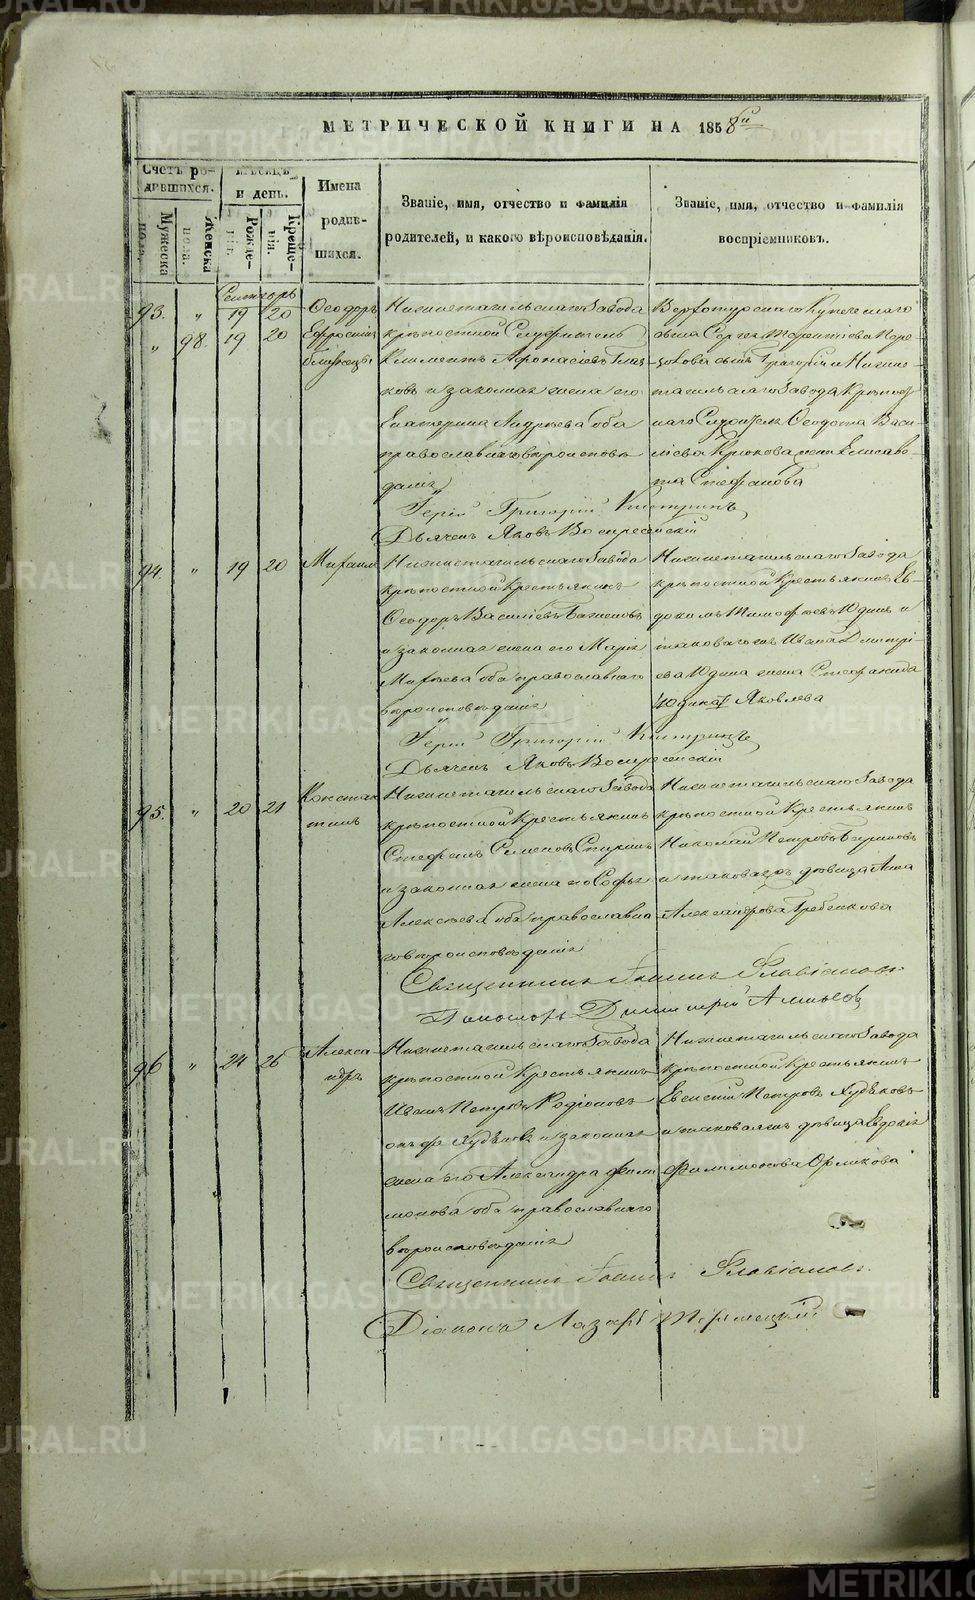 МЕТРИЧЕСКОЙ КНИГИ НА 1858й
Счетъ ро-
дившихся.
Мужеска
пола.
Женска
пола.
Мѣсяцъ
и день.
Рожде-
нія.
Креще-
нія.
Имена
родив-
шихся.
Званіе, имя, отчество и фамилія
родителей, и какого вѣроисповѣданія.
Званіе, имя, отчество и фамилія
воспріемниковъ.
Сентябрь
93. " 19 20 Ѳеодоръ
" 98. 19 20
близнецы
Нижнетагильскаго Завода
крѣпостной Служитель
Климентъ Афонасіевъ
ковъ и законная жена его
Екатерина Андреева оба
православнаго вѣроисповѣ
данія
Верхотурскаго Купеческаго
сына Сергея
сынъ Григорій и Нижне-
тагильскаго Завода Крѣпост
наго Служителя Ѳеодота Васи
лiева Крюкова жена Елисаве-
та Стефанова
Іерей Григорій
Дьячекъ Яковъ Воскресенскій
94. " 19 20 Михаилъ
Нижнетагильскаго Завода
крѣпостной Крестьянинъ
Ѳеодоръ Василіевъ Баженовъ
и законная жена его Марія
Матѳеева оба православнаго
вѣроисповѣданія
Нижнетагильскаго Завода
крѣпостной Крестьянинъ Ев-
докимъ Тимоѳеевъ Юдинъ и
таковагожъ Ивана Дмитрі-
ева Юдина жена Стефанида
Яковлева
Іерей Григорій
Дьячекъ Яковъ Воскресенскій
95. " 20 21 Констан
тинъ
Нижнетагильскаго Завода
крѣпостной Крестьянинъ
Стефанъ Семеновъ
и законная жена его Софья
Алексѣева оба православна
го вѣроисповѣданія
Нижнетагильскаго Завода
крѣпостной Крестьянинъ
Николай Петровъ
и таковагожъ дѣвица Анна
Александрова Гребенкова
Священникъ Іоаннъ Флавіановъ
Пономарь Димитрій
96 " 24 26 Алекса-
ндръ
Нижнетагильскаго Завода
крѣпостной Крестьянинъ
Иванъ Петровъ Родіоновъ
онъ же Худяковъ и законная
жена его Александра Фили
монова оба православнаго
вѣроисповѣданія
Нижнетагильскаго Завода
крѣпостной Крестьянинъ
Евгеній Петровъ Худяковъ
и таковагожъ дѣвица Евдокія
Филимонова Орликова
Священникъ Іоаннъ Флавіановъ
Діаконъ Лазарь
METRIKI.GASO-URAL.RU